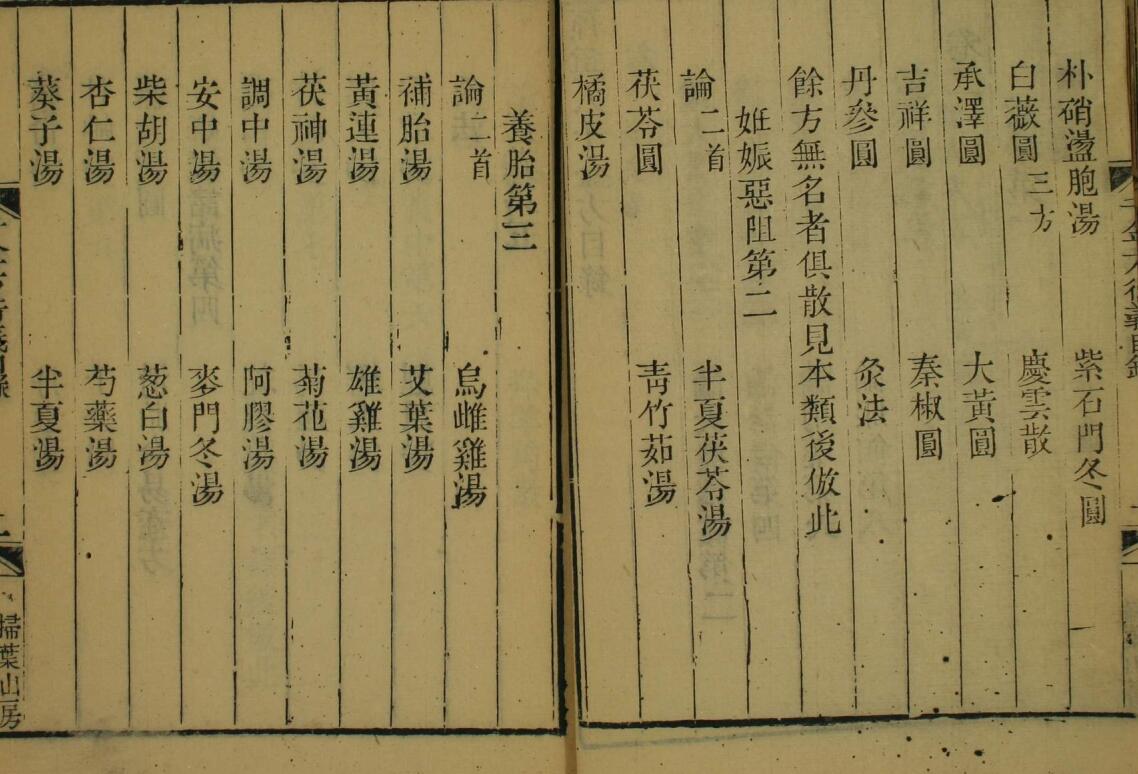 朴硝盪胞湯 紫石門冬圓
白薇圓三方 慶雲散
承澤圓 大黃圓
吉祥圓 秦椒圓
丹參圓 灸法
餘方無名者俱散見本類後倣此
妊娠惡阻第二
論二首 半夏茯苓湯
茯苓圓 靑竹茹湯
橘皮湯
養胎第三
論二首 烏雌雞湯
補胎湯 艾葉湯
黃連湯 雄雞湯
茯神湯 菊花湯
調中湯 阿膠湯
安中湯 麥門冬湯
柴胡湯 葱白湯
杏仁湯 芍藥湯
葵子湯 半夏湯
掃葉山房